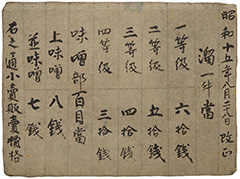 昭和十五年八月二十八日改正
溜一升當
一等級　六拾錢
二等級　五拾錢
三等級　四拾錢
四等級　三拾錢
味噌部百目當
上味噌　八錢
並味噌　七錢
右之通小賣販賣價格